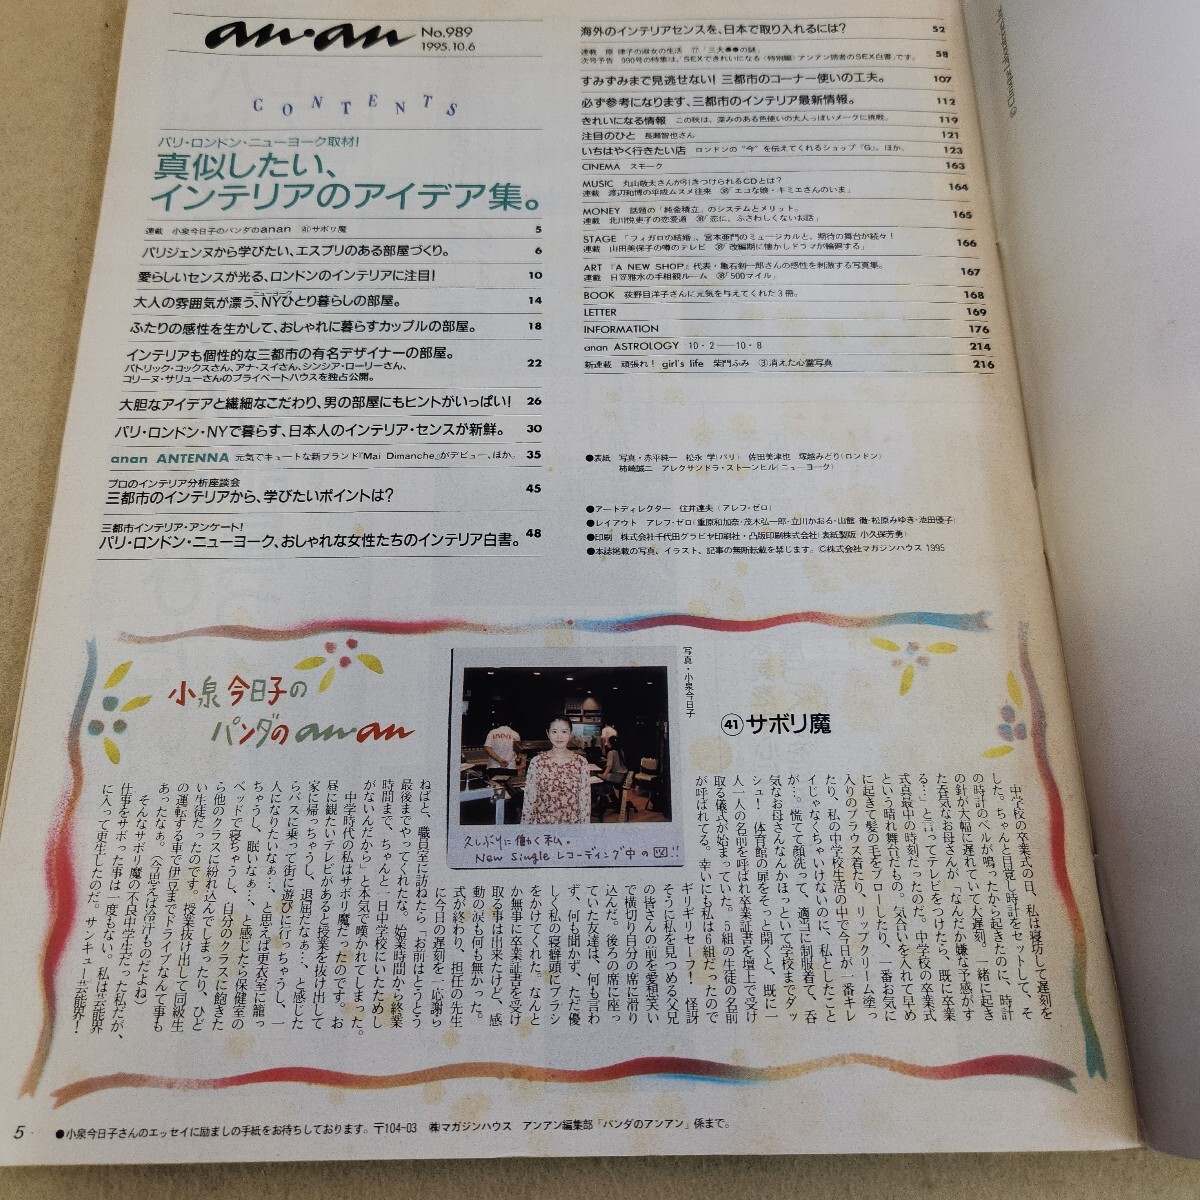 an・an No.989
1995.10.6
CONTENTS
パリ・ロンドン・ニューヨーク取材!
真似したい、
インテリアのアイデア集。
連載 小泉今日子のパンダのanan ㊶サボリ魔 5
パリジェンヌから学びたい、エスプリのある部屋づくり。 6
愛らしいセンスが光る、ロンドンのインテリアに注目! 10
大人の雰囲気が漂う、NYひとり暮らしの部屋。 14
ふたりの感性を生かして、おしゃれに暮らすカップルの部屋。 18
インテリアも個性的な三都市の有名デザイナーの部屋。 22
パトリック・コックスさん、アナ・スイさん、シンシア・ローリーさん、
コリーヌ・サリューさんのプライベートハウスを独占公開。
大胆なアイデアと繊細なこだわり、男の部屋にもヒントがいっぱい! 26
パリ・ロンドン・NYで暮らす、日本人のインテリア・センスが新鮮。 30
anan ANTENNA 元気でキュートな新ブランド『Mai Dimanche』がデビュー、ほか。 35
プロのインテリア分析座談会
三都市のインテリアから、学びたいポイントは? 45
三都市インテリア・アンケート!
パリ・ロンドン・ニューヨーク、おしゃれな女性たちのインテリア白書。 48
海外のインテリアセンスを、日本で取り入れるには? 52
連載 原 律子の淑女の生活 ⑰「三大●●の謎」 58
次号予告 990号の特集は、「SEXできれいになる〈特別編〉アンアン読者のSEX白書」です。
すみずみまで見逃せない! 三都市のコーナー使いの工夫。 107
必ず参考になります、三都市のインテリア最新情報。 112
きれいになる情報 この秋は、深みのある色使いの大人っぽいメークに挑戦。 119
注目のひと 長瀬智也さん 121
いちはやく行きたい店 ロンドンの“今”を伝えてくれるショップ『G』、ほか。 123
CINEMA スモーク 163
MUSIC 丸山敬太さんが引きつけられるCDとは? 164
連載 渡辺和博の平成ムスメ往来 ㊳「エコな娘・キミエさんのいま」
MONEY 話題の「純金積立」のシステムとメリット。 165
連載 北川悦吏子の恋愛道 ㊳「恋に、ふさわしくないお話」
STAGE 「フィガロの結婚」、宮本亜門のミュージカルと、期待の舞台が続々! 166
連載 山田美保子の噂のテレビ ㊳「改編期に懐かしドラマが論題する」
ART 『A NEW SHOP』代表・亀石剣一郎さんの感性を刺激する写真集。 167
連載 日笠雅水の手相観ルーム ㊳「500マイル」
BOOK 荻野目洋子さんに元気を与えてくれた3冊。 168
LETTER 169
INFORMATION 176
anan ASTROLOGY 10・2——10・8 214
新連載 頑張れ! girl's life 柴門ふみ ③消えた心霊写真 216
●表紙 写真・赤平純一 松永 学(パリ) 佐田美津也 塚越みどり(ロンドン)
柿崎誠二 アレクサンドラ・ストーンヒル(ニューヨーク)
●アートディレクター 住井達夫(アレフ・ゼロ)
●レイアウト アレフ・ゼロ(重原和加奈・茂木弘一郎・立川かおる・山館 徹・松原みゆき・池田優子)
●印刷 株式会社千代田グラビヤ印刷社・凸版印刷株式会社(表紙製版 小久保芳勇)
●本誌掲載の写真、イラスト、記事の無断転載を禁じます。©株式会社マガジンハウス 1995
小泉今日子の
パンダのan・an
写真・小泉今日子
久しぶりに働く私。
New Single レコーディング中の図!!
㊶サボリ魔
中学校の卒業式の日、私は寝坊して遅刻を
した。ちゃんと目覚し時計をセットして、そ
の時計のベルが鳴ったから起きたのに、時計
の針が大幅に遅れていて大遅刻。一緒に起き
た呑気なお母さんが、「なんだか嫌な予感がす
る…」と言ってテレビをつけたら、既に卒業
式真最中の時刻だったのだ。中学校の卒業式
という晴れ舞台だもの。気合いを入れて早め
に起きて髪の毛をブローしたり、一番お気に
入りのブラウス着たり、リップクリーム塗っ
たり、私の中学校生活の中で今日が一番キレ
イじゃなくちゃいけないのに、私としたこと
が…。慌てて顔洗って、適当に制服着て、呑
気なお母さんなんかほっといて学校までダッ
シュ! 体育館の扉をそっと開くと、既に一
人一人の名前を呼ばれ卒業証書を壇上で受け
取る儀式が始まっていた。5組の生徒の名前
が呼ばれてる。幸いにも私は6組だったので
ギリギリセーフ! 怪訝
そうに私を見つめる父兄
の皆さんの前を愛想笑い
で横切り自分の席に滑り
込んだ。後ろの席に座っ
ていた友達は、何も言わ
ず、何も聞かず、ただ優
しく私の寝癖頭にブラシ
をかけてくれた。なんと
か無事に卒業証書を受け
取る事は出来たけど、感
動の涙も何も無かった。
式が終わり、担任の先生
に今日の遅刻を一応謝ら
ねばと、職員室に訪ねたら「お前はとうとう
最後までやってくれたな。始業時間から終業
時間まで、ちゃんと一日中学校にいたためし
がないんだから」と本気で嘆かれてしまった。
中学時代の私はサボリ魔だったのです。お
昼に観たいテレビがあると授業を抜け出して
家に帰っちゃうし、退屈だなぁ…、と感じた
らバスに乗って街に遊びに行っちゃうし、一
人になりたいなぁ…、と思えば更衣室に籠っ
ちゃうし、眠いなぁ…、と感じたら保健室の
ベッドで寝ちゃうし、自分のクラスに飽きた
ら他のクラスに紛れ込んでしまったり、ひど
い生徒だったのです。授業抜け出して同級生
の運転する車で伊豆までドライブなんて事も
あったなぁ。(今思えば冷汗ものだよね)
そんなサボリ魔の不良中学生だった私だが、
仕事をサボった事は一度もない。私は芸能界
に入って更生したのだ。サンキュー芸能界!
5
●小泉今日子さんのエッセイに励ましの手紙をお待ちしております。〒104-03 ㈱マガジンハウス アンアン編集部「パンダのアンアン」係まで。